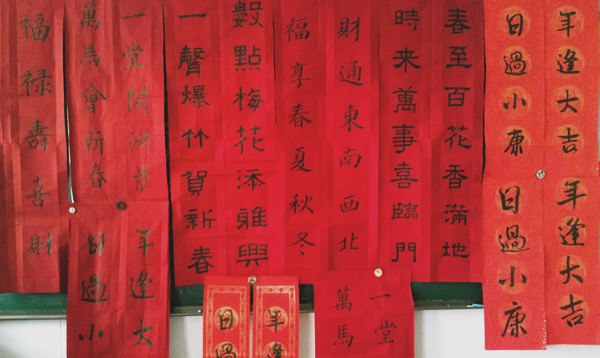 年逢大吉
日過小康
年逢大吉
日過小康
春至百花香滿地
時來萬事喜臨門
財通東南西北
福享春夏秋冬
數點梅花添雅興
一聲爆竹賀新春
一堂開淑景
萬馬會新春
福祿壽喜財
一堂
萬馬
年逢
日過
年逢大
日過小